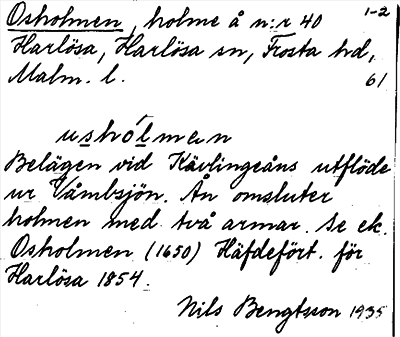 Osholmen, holme å n:r 40 1-2
Harlösa, Harlösa sn, Frosta hd,
Malm. l. 61
usholmen
Belägen vid Kävlingeåns utflöde
ur Våmbsjön. Ån omsluter
holmen med två armar. Se ek.
Osholmen (1650) Häfdefört. för
Harlösa 1854.
Nils Bengtsson 1935